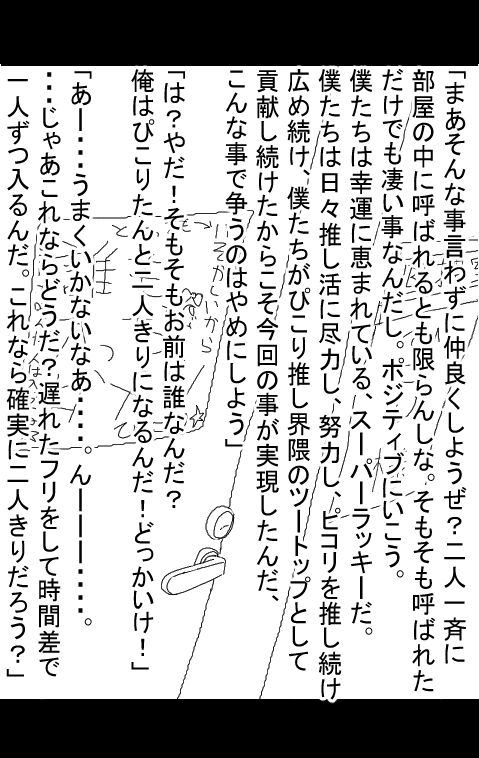 「まあそんな事言わずに仲良くしようぜ？二人一斉に
部屋の中に呼ばれるとも限らんしな。そもそも呼ばれた
だけでも凄い事なんだし。ポジティブにいこう。
僕たちは幸運に恵まれている、スーパーラッキーだ。
僕たちは日々推し活に尽力し、努力し、ピコリを推し続け
広め続け、僕たちがぴこり推し界隈のツートップとして
貢献し続けたからこそ今回の事が実現したんだ、
こんな事で争うのはやめにしよう」
「は？やだ！そもそもお前は誰なんだ？
俺はぴこりたんと二人きりになるんだ！どっかいけ！」
「あー・・・うまくいかないなあ・・・。んーーー・・・。
・・・じゃあこれならどうだ？遅れたフリをして時間差で
一人ずつ入るんだ。これなら確実に二人きりだろう？」
いそがしいから